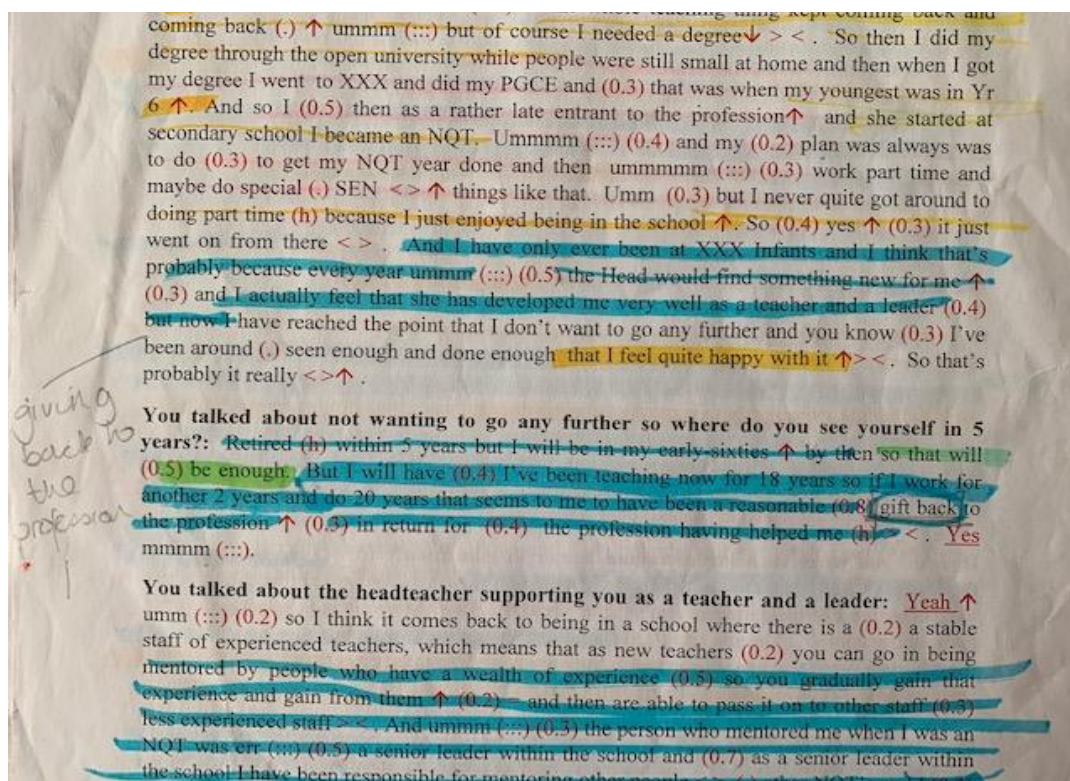 teaching thing kept coming back and
coming back (.) ↑ ummm (:::) but of course I needed a degree↓ > < . So then I did my
degree through the open university while people were still small at home and then when I got
my degree I went to XXX and did my PGCE and (0.3) that was when my youngest was in Yr
6 ↑. And so I (0.5) then as a rather late entrant to the profession↑ and she started at
secondary school I became an NQT. Ummmm (:::) (0.4) and my (0.2) plan was always was
to do (0.3) to get my NQT year done and then ummmmm (:::) (0.3) work part time and
maybe do special (.) SEN < > ↑ things like that. Umm (0.3) but I never quite got around to
doing part time (h) because I just enjoyed being in the school ↑. So (0.4) yes ↑ (0.3) it just
went on from there < > . And I have only ever been at XXX Infants and I think that's
probably because every year ummm (:::) (0.5) the Head would find something new for me ↑
(0.3) and I actually feel that she has developed me very well as a teacher and a leader (0.4)
but now I have reached the point that I don't want to go any further and you know (0.3) I've
been around (.) seen enough and done enough that I feel quite happy with it ↑> < . So that's
probably it really < >↑ .
giving
back to
the
profession
You talked about not wanting to go any further so where do you see yourself in 5
years?: Retired (h) within 5 years but I will be in my early-sixties ↑ by then so that will
(0.5) be enough. But I will have (0.4) I've been teaching now for 18 years so if I work for
another 2 years and do 20 years that seems to me to have been a reasonable (0.8) gift back to
the profession ↑ (0.3) in return for (0.4) the profession having helped me (h) > < . Yes
mmmm (:::).
You talked about the headteacher supporting you as a teacher and a leader: Yeah ↑
umm (:::) (0.2) so I think it comes back to being in a school where there is a (0.2) a stable
staff of experienced teachers, which means that as new teachers (0.2) you can go in being
mentored by people who have a wealth of experience (0.5) so you gradually gain that
experience and gain from them ↑ (0.2) and then are able to pass it on to other staff (0.3)
less experienced staff > < . And ummm (:::) (0.3) the person who mentored me when I was an
NQT was err (:::) (0.5) a senior leader within the school and (0.7) as a senior leader within
the school I have been responsible for mentoring other people